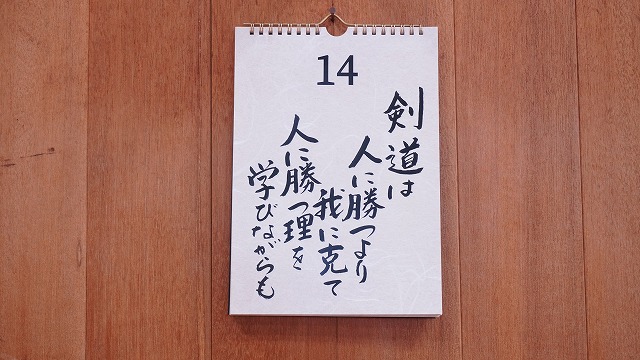 14
剣道は
人に勝つより
我に克て
人に勝つ理を
学びながらも